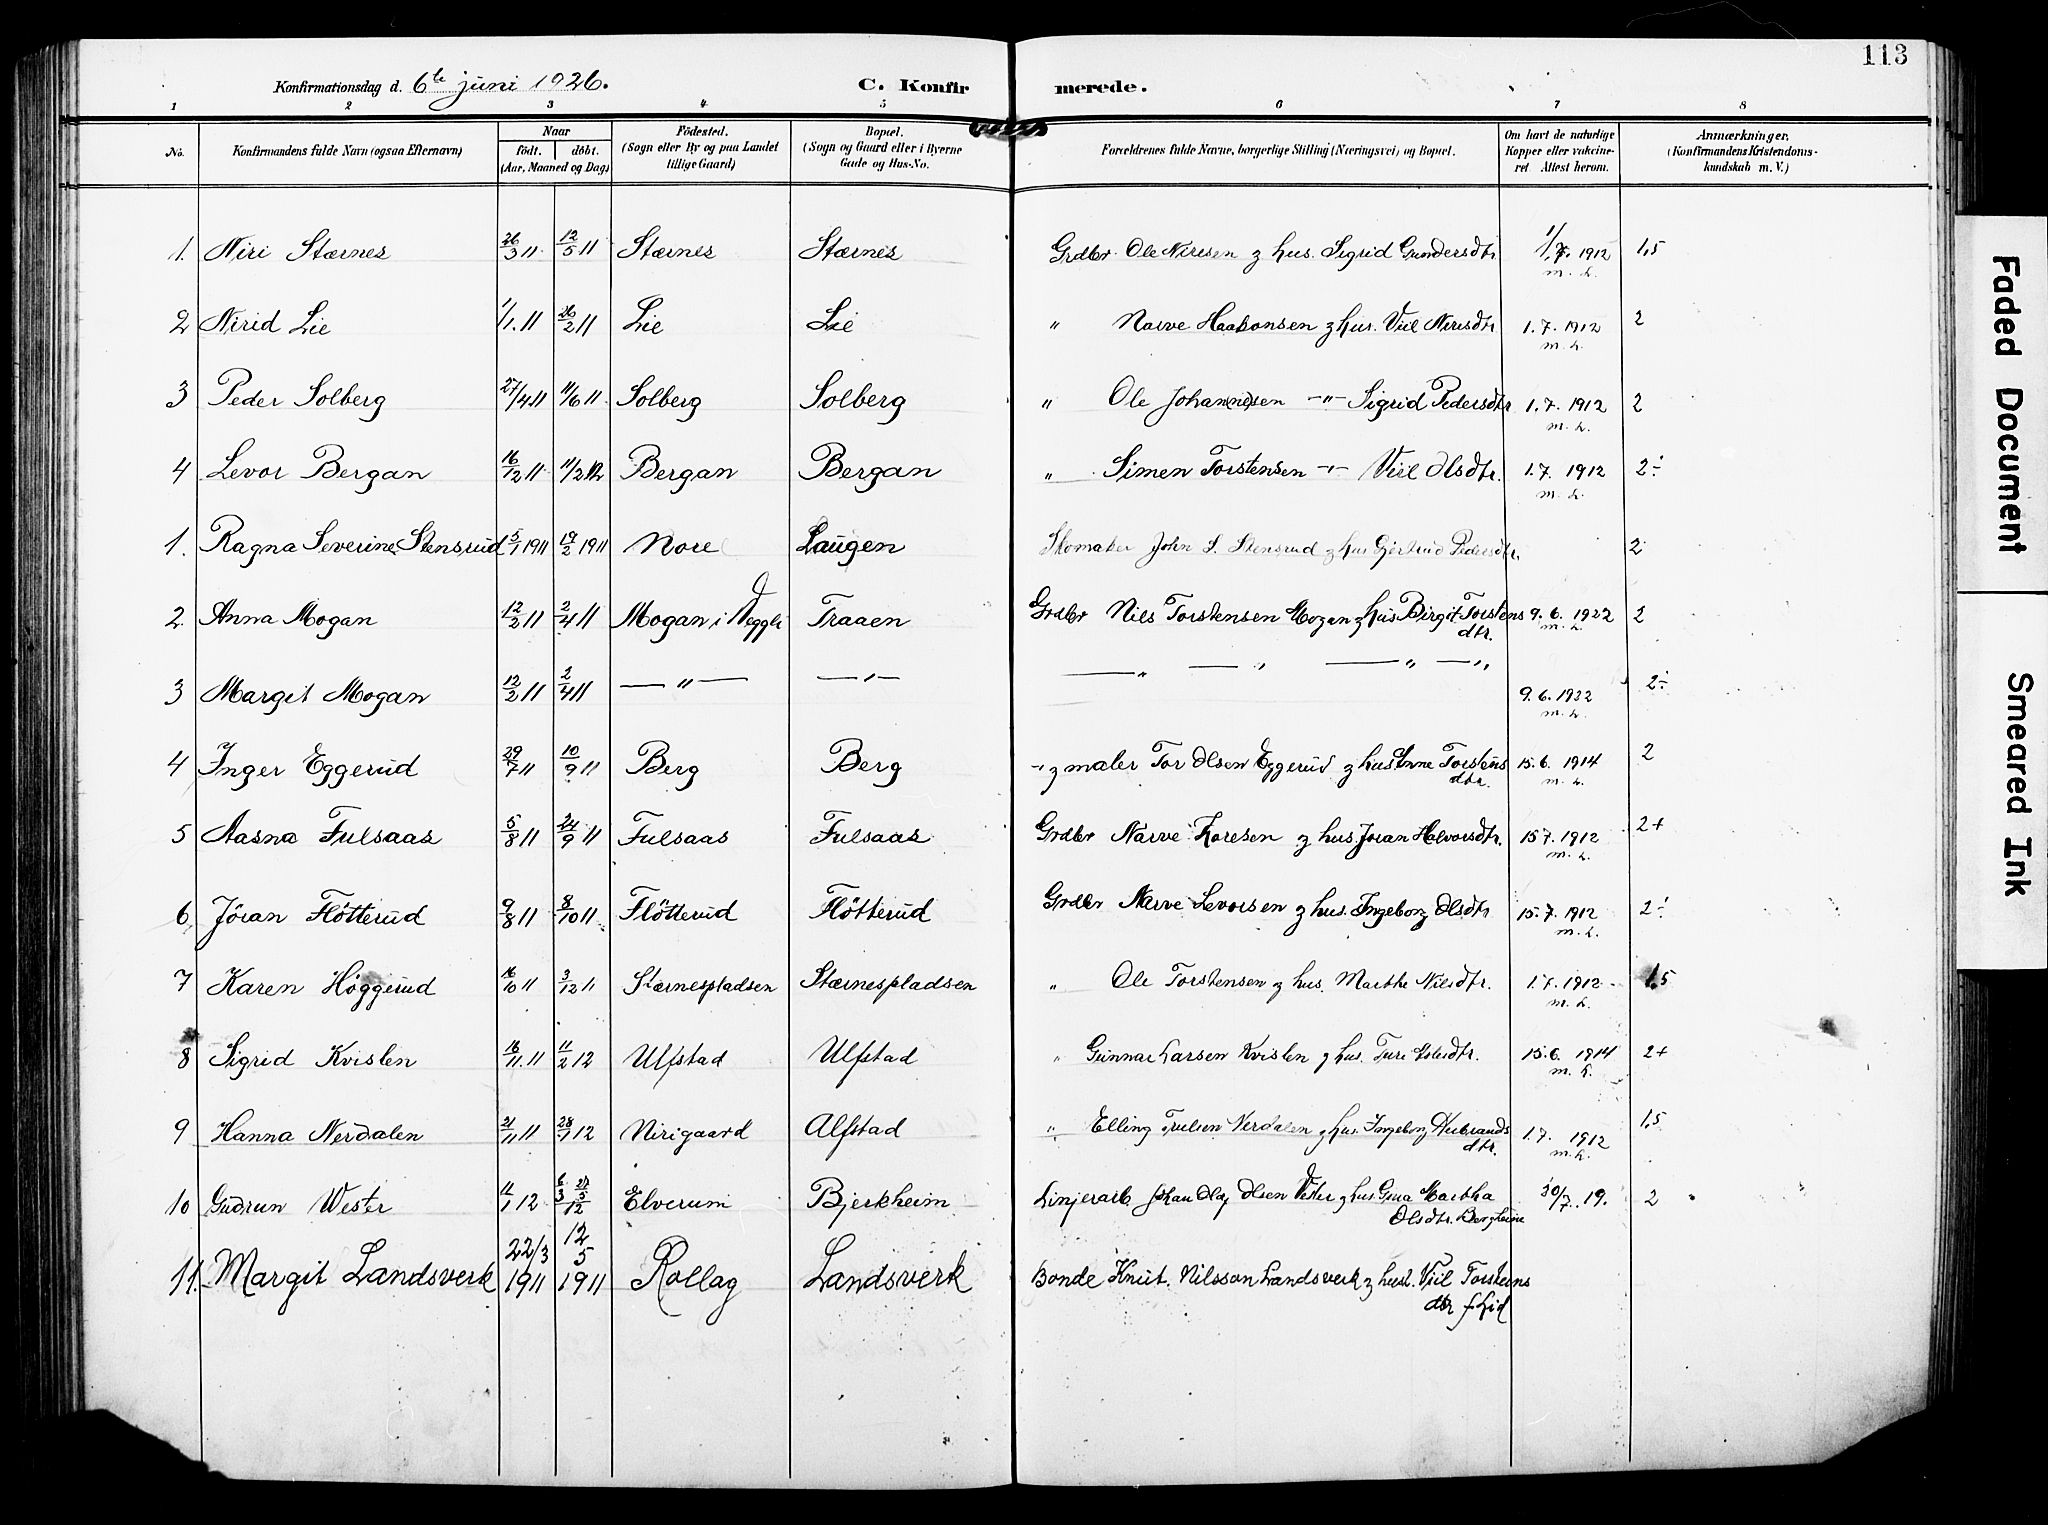 113
Konfirmationsdag d. 6te juni 1926. C. Konfirmerede.
1 2 3 4 5 6 7 8
No. Konfirmandens fulde Navn (ogsaa Efternavn) Naar født. døbt. (Aar, Maaned og Dag) Fødested. (Sogn eller By og paa Landet tillige Gaard) Bopæl. (Sogn og Gaard eller i Byerne Gade og Hus-No. Forældrenes fulde Navne, borgerlige Stilling (Næringsvei) og Bopæl. Om havt de naturlige Kopper eller vakcineret Attest herom. Anmærkninger. (Konfirmandens Kristendomskundskab m. V.)
1. Niri Stærnes 26/3 11 12/5 11 Stærnes Stærnes Grdbr Ole Niresen g hus. Sigrid Gundersdtr 1/7. 1912 1,5
2 Nirid Lie 1/1. 11 26/2 11 Lie Lie " Narve Haakonsen g hus. Viil Nirisdtr 1. 7. 1912 2
3 Peder Solberg 27/4 11 11/6 11 Solberg Solberg " Ole Johannesen -"- Sigrid Pedersdtr 1. 7. 1912 2
4 Levor Bergan 16/12 11 11/2 12 Bergan Bergan " Simen Torstensen -"- Viil Olsdtr. 1. 7. 1912 2÷
1. Ragna Severine Stensrud 5/1 1911 19/2 1911 Nore Laugen Skomaker John S. Stensrud g hus Gjertrud Pedersdtr. 2
2. Anna Mogan 12/2 11 2/4 11 Mogan i Veggli Traaen Grdbr Nils Torstensen Mogan g hus Birgit Torstens
dtr. 9. 6. 1922 2
3 Margit Mogan 12/2 11 2/4 11 — " — — " — — " — " — " — " 9. 6. 1922 2÷
4 Inger Eggerud 29/7 11 10/9 11 Berg Berg -" g maler Tor Olsen Eggerud g hus Anne Torstens
dtr. 15. 6. 1914 2
5 Aasna Fulsaas 5/8 11 24/9 11 Fulsaas Fulsaas Grdbr Narve Toresen g hus. Joran Halvorsdtr. 15 7. 1912 2+
6 Jöran Flötterud 9/8 11 8/10 11 Flötterud Flötterud Grdbr Narve Levorsen g hus. Ingeborg Olsdtr 15. 7. 1912 2÷
7 Karen Höggerud 16/10 11 3/12 11 Stærnespladsen Stærnespladsen " Ole Torstensen g hus. Marthe Nilsdtr. 1. 7. 1912 1,5
8 Sigrid Kvislen 16/11. 11 11/2 12 Ulfstad Ulfstad " Gunnar Larsen Kvislen g hus. Turi dtr. 15. 6. 1914 2+
9 Hanna Nerdalen 21/11 11 28/1 12 Nirigaard Alfstad " Elling Trulsen Nerdalen g hus. Ingeborg
dtr. 1. 7. 1912 1,5
10 Gudrun Wester 11/1 12 6/3 12 Elverum Bjerkheim Linjearb. Johan Olaf Olsen Vester g hus Gina Martha
Olsdtr. 30/7. 19. 2
11. Margit Landsverk 22/3 1911 12/5 1911 Rollag Landsverk Bonde Knut. Nilsson Landsverk g hust. Viil Torsteins
dtr f. Lid
Faded Document
Smeared Ink